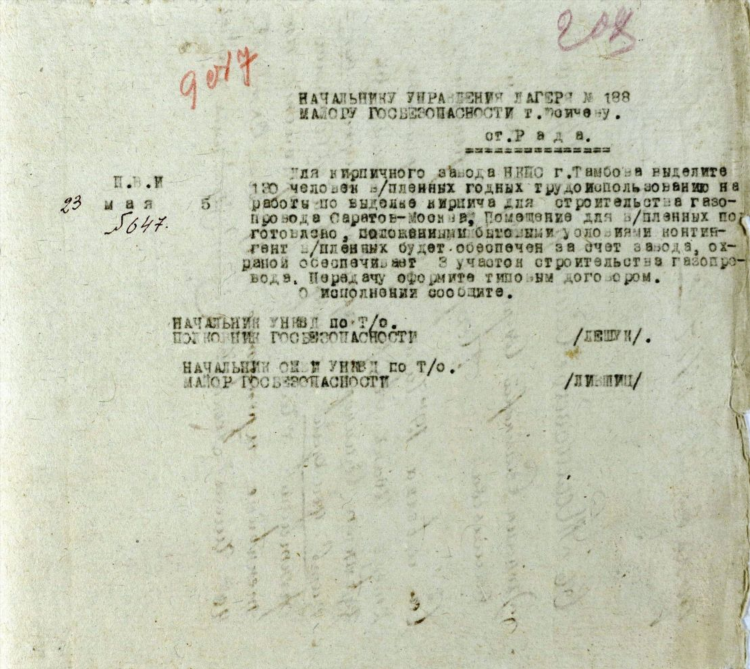 208
9 от 7
НАЧАЛЬНИКУ УПРАВЛЕНИЯ ЛАГЕРЯ № 188
МАЙОРУ ГОСБЕЗОПАСНОСТИ т.Юсичеву.
ст.Рада.
П.В.И
23 мая 5
№ 647.
Для кирпичного завода НКПС г.Тамбова выделите
130 человек в/пленных годных трудоиспользованию на
работы по выделке кирпича для строительства газо-
провода Саратов-Москва, Помещение для в/пленных под
готовлено, положенными бытовыми условиями контин-
гент в/пленных будет обеспечен за счет завода, ох-
раной обеспечивает 3 участок строительства газопро-
вода. Передачу оформите типовым договором.
О исполнении сообщите.
НАЧАЛЬНИК УНКВД по Т/о.
ПОЛКОВНИК ГОСБЕЗОПАСНОСТИ /ЛЕЩУК/.
НАЧАЛЬНИК УНКВД по Т/о.
МАЙОР ГОСБЕЗОПАСНОСТИ /ЛИВШИЦ/